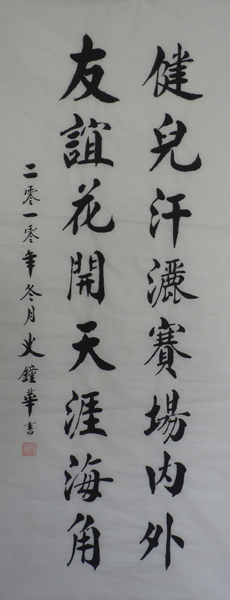 健兒汗灑賽場内外
友誼花開天涯海角
二零一零年冬月史鐘華書